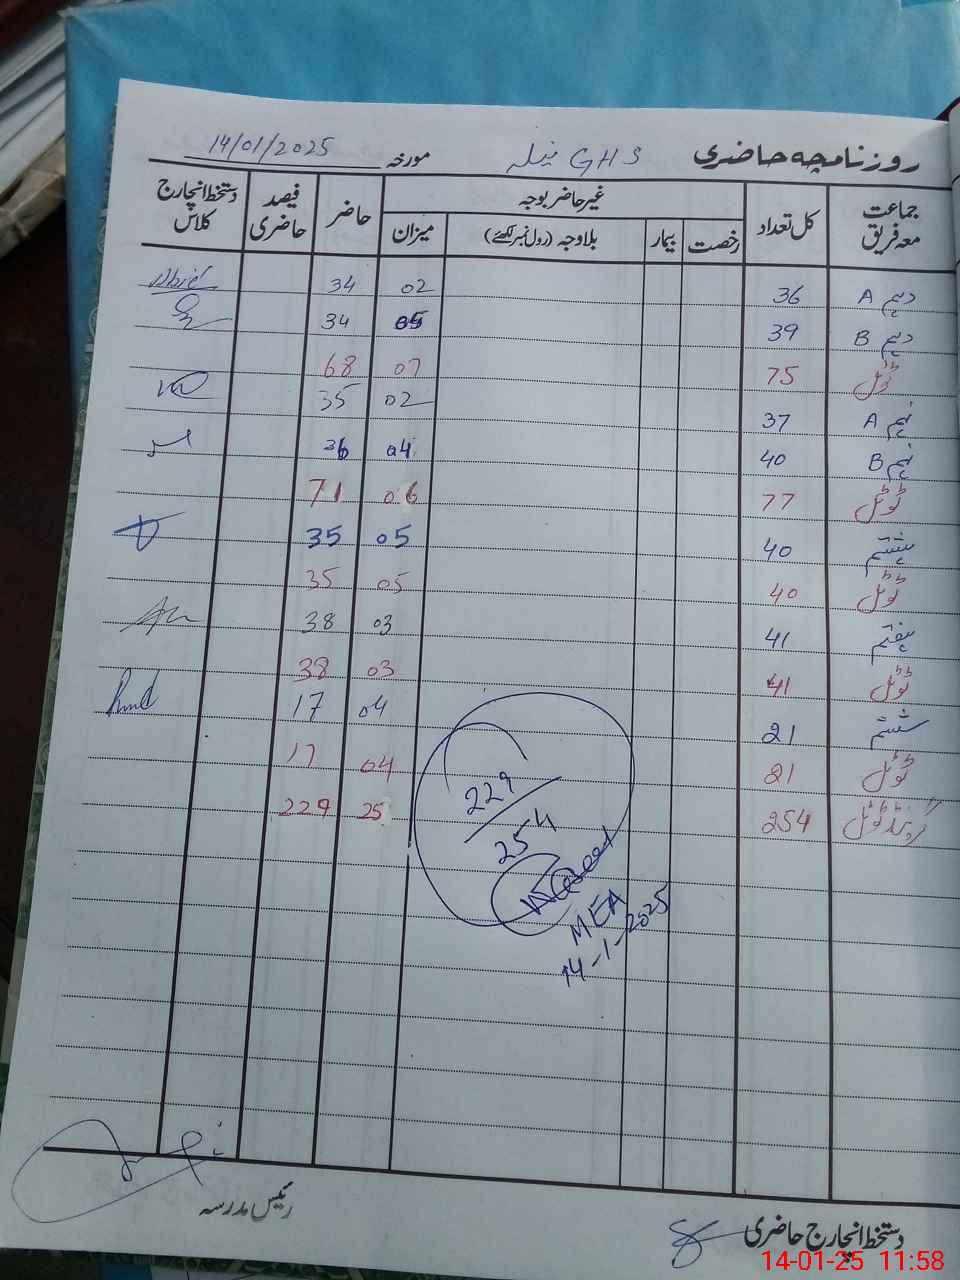 روزنامچہ حاضری GHS مورخہ 14/01/2025
جماعت معہ فریق کل تعداد غیر حاضر بوجہ حاضر فیصد حاضری دستخط انچارج کلاس
رخصت بیمار بلاوجہ (رول نمبر لکھئے) میزان
دہم A 36 02 34
دہم B 39 05 34
ٹوٹل 75 07 68
نہم A 37 02 35
نہم B 40 04 36
ٹوٹل 77 06 71
ہشتم 40 05 35
ٹوٹل 40 05 35
ہفتم 41 03 38
ٹوٹل 41 03 38
ششم 21 04 17
ٹوٹل 21 04 17
گرینڈ ٹوٹل 254 25 229
229
254
MEA
14-1-2025
رئیس مدرسہ
دستخط انچارج حاضری
14-01-25 11:58